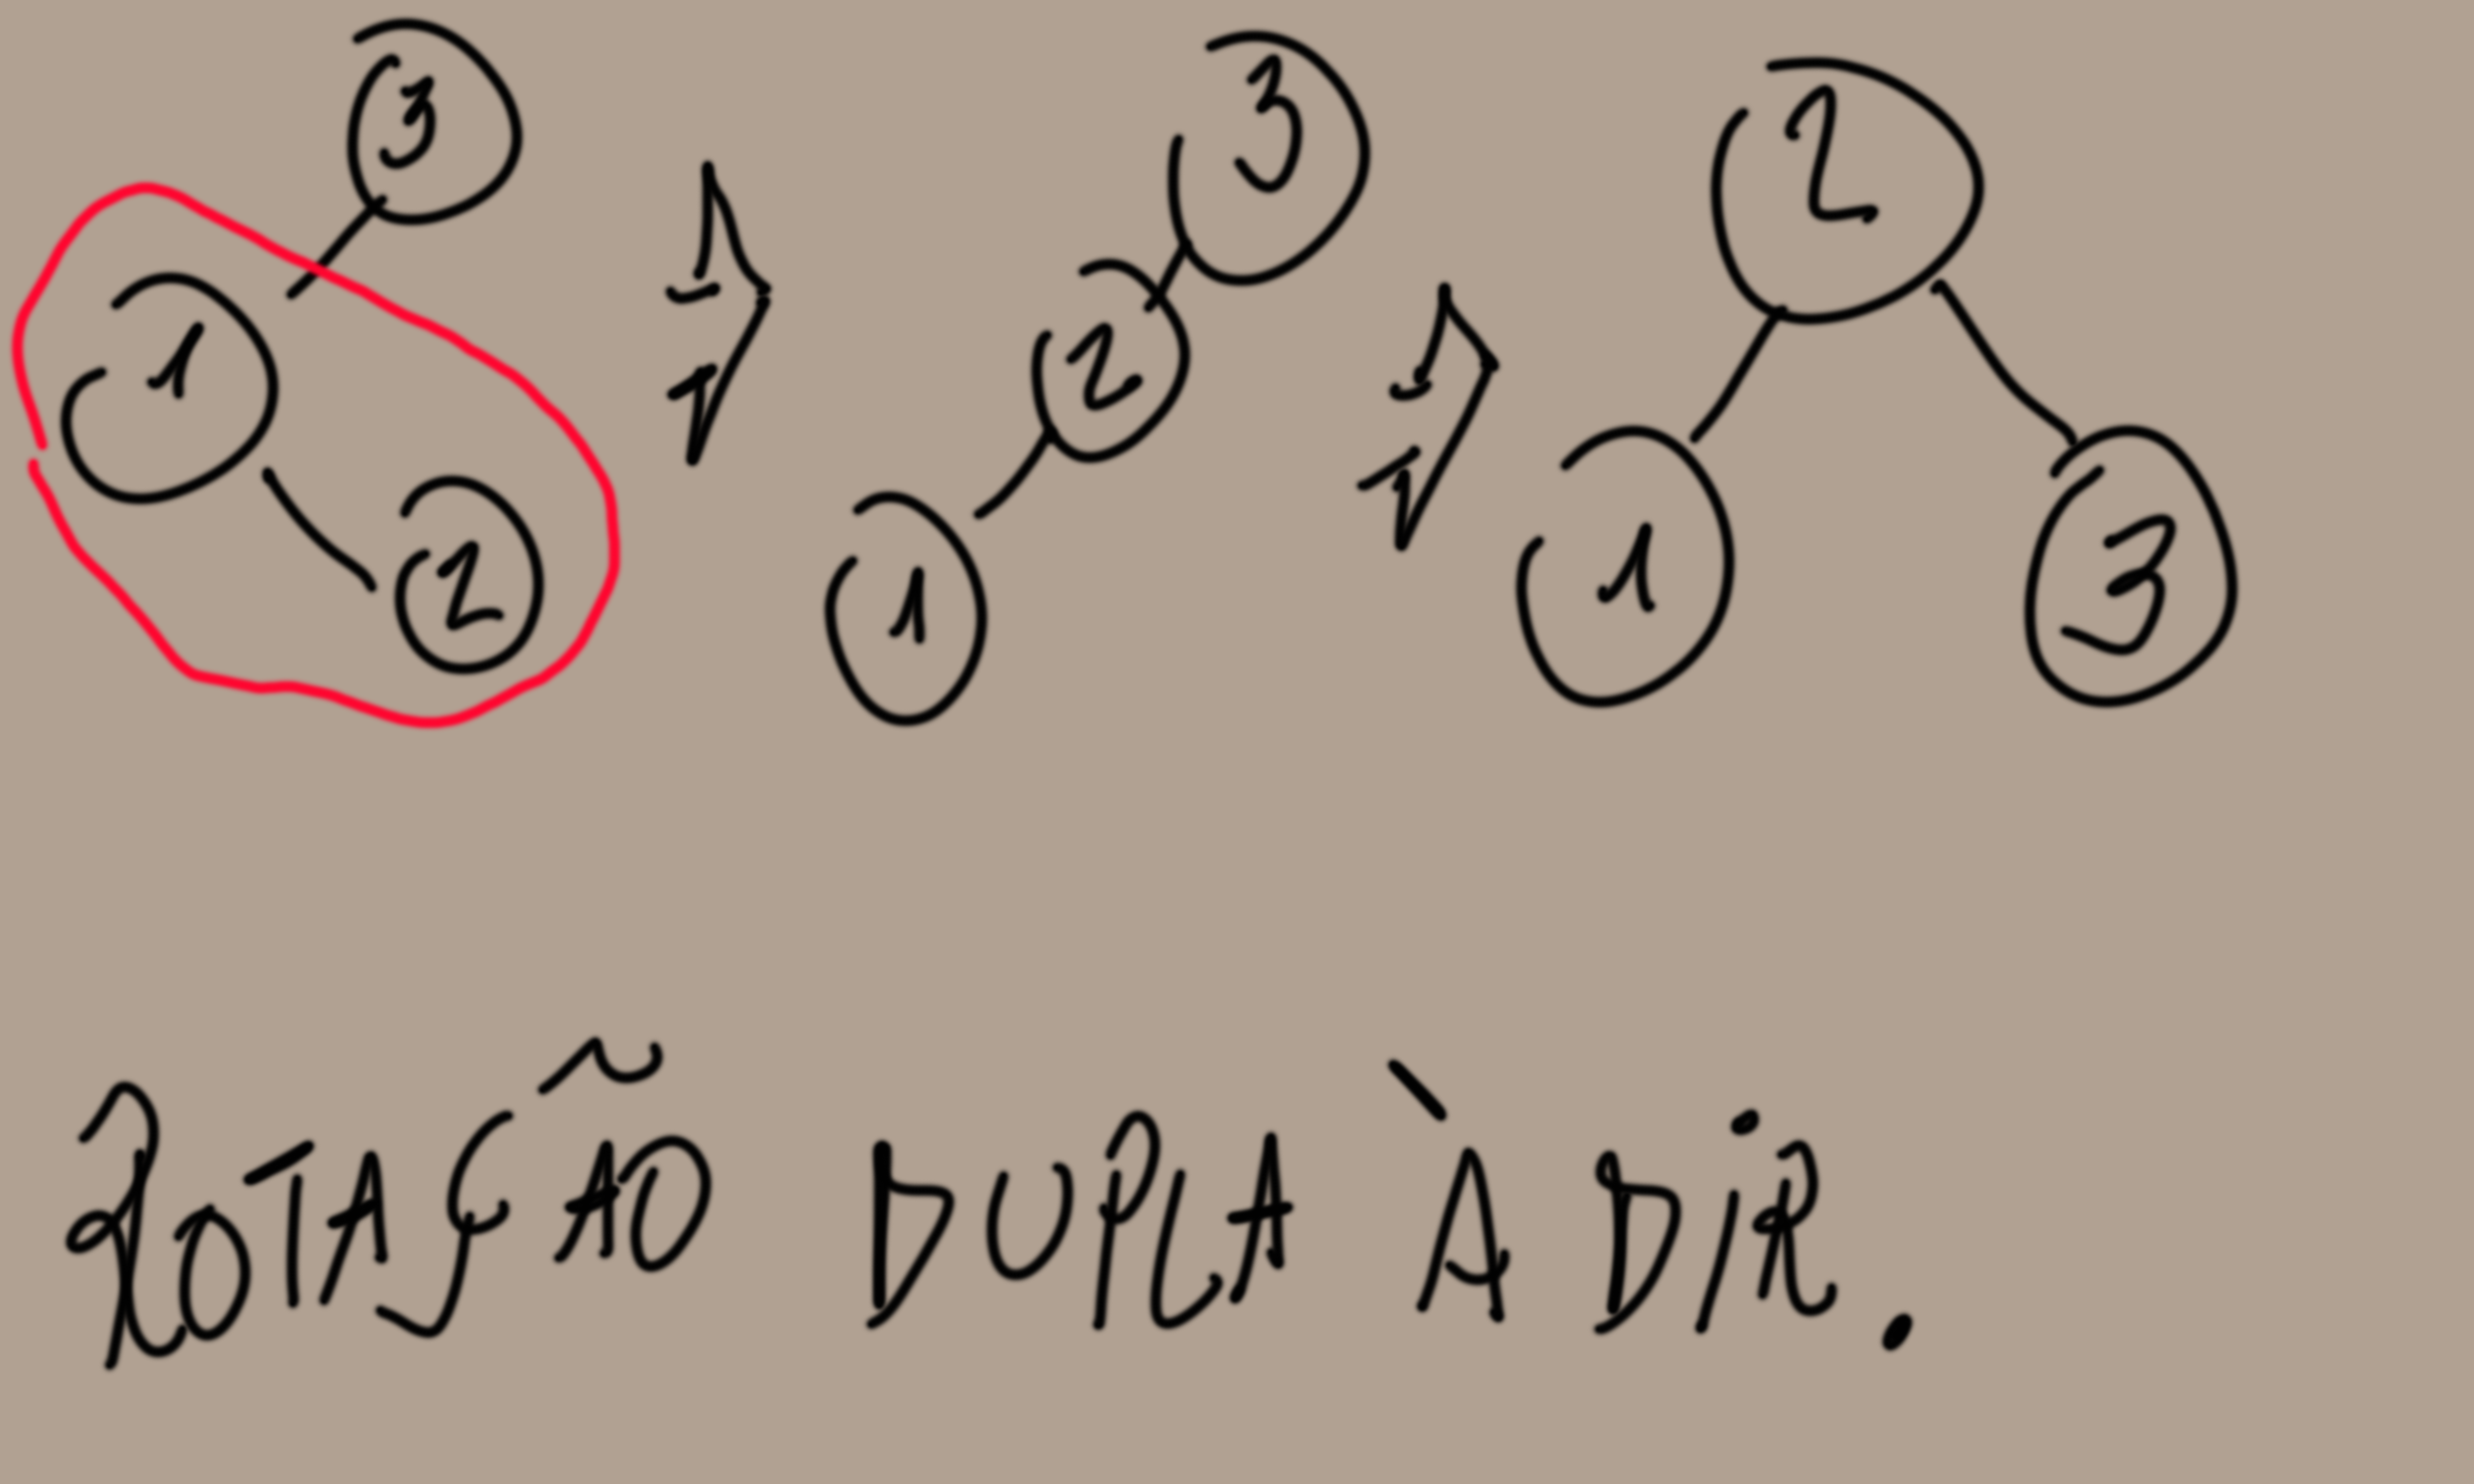 3 3 2
1 2 1 3
2 1
ROTAÇÃO DUPLA À DIR.